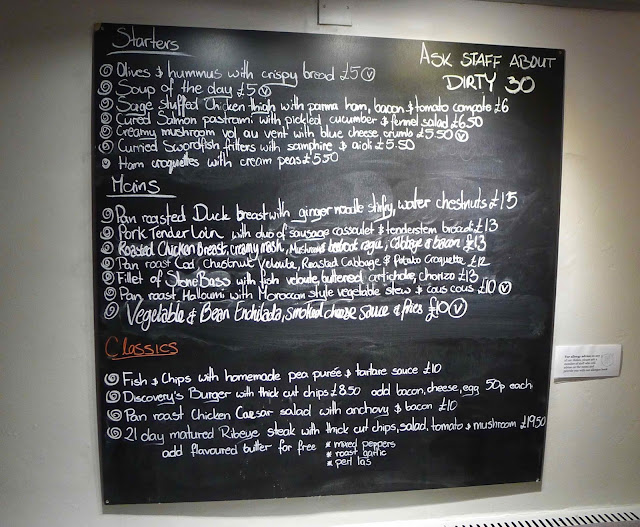 Starters
ASK STAFF ABOUT
DIRTY 30
Olives & hummus with crispy bread £5 V
Soup of the day £5 V
Sage stuffed Chicken thigh with parma ham, bacon & tomato compote £6
Cured Salmon pastrami with pickled cucumber & fennel salad £6.50
Creamy mushroom vol au vent with blue cheese crumb £5.50 V
Curried Swordfish fritters with samphire & aioli £5.50
Ham croquettes with cream peas £5.50
Mains
Pan roasted Duck breast with ginger noodle stirfry, water chestnuts £15
Pork Tenderloin with duo of sausage cassoulet & tenderstem £13
Roasted Chicken Breast, creamy mash, Mushroom ragu, Cabbage & bacon £13
Pan roast Cod chestnut Veloute, Roasted Cabbage & Potato Croquette £12
Fillet of Stone Bass with fish veloute, buttered artichoke, chorizo £13
Pan roast Halloumi with Moroccan style vegetable stew & cous cous £10 V
Vegetable & Bean Enchilada, smoked cheese sauce & fries £10 V
Classics
Fish & Chips with homemade pea purée & tartare sauce £10
Discovery's Burger with thick cut chips £8.50 add bacon, cheese, egg 50p each
Pan roast Chicken Caesar salad with anchovy & bacon £10
21 day matured Ribeye steak with thick cut chips, salad, tomato & mushroom £19.50
add flavoured butter for free * mixed peppers
* roast garlic
* peri las